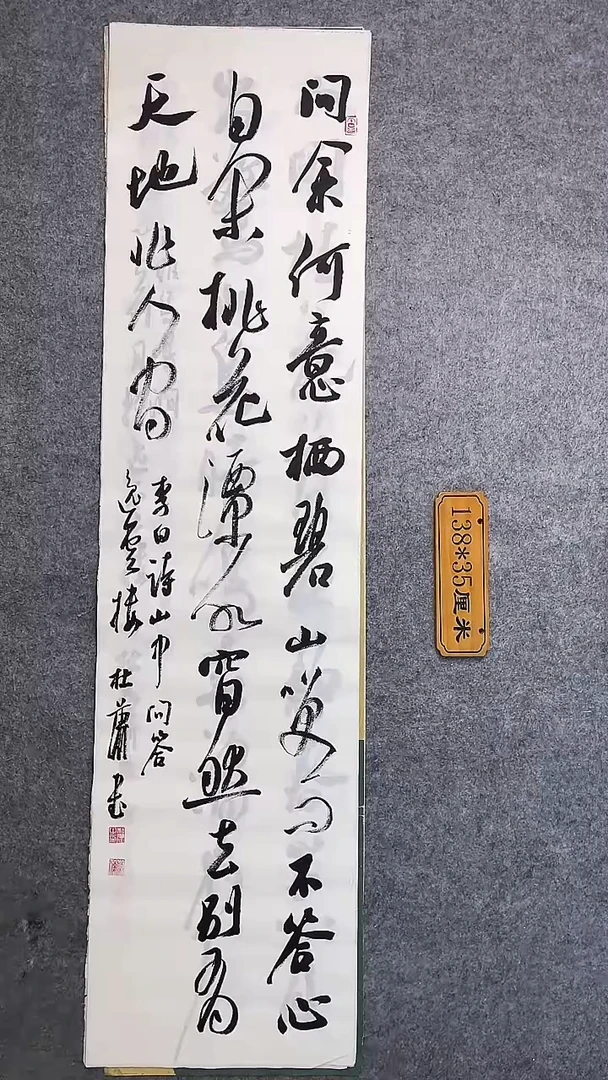 问余何意栖碧山笑而不答心
自闲桃花潭水窅然去别有
天地非人间
李白诗山中问答
逸云楼 杜萧书
138*35厘米